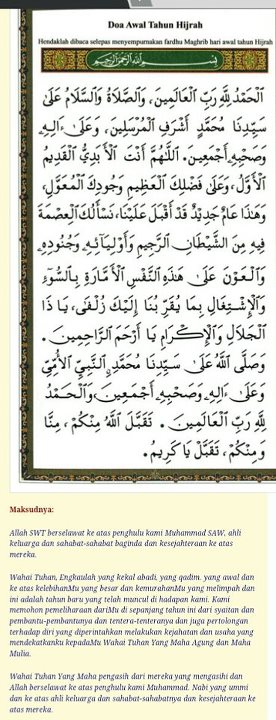 Doa Awal Tahun Hijrah
Hendaklah dibaca selepas menyempurnakan fardhu Maghrib hari awal tahun Hijrah
بِسْمِ اللَّهِ الرَّحْمَنِ الرَّحِيمِ
اَلْحَمْدُ لِلَّهِ رَبِّ الْعَالَمِينَ، وَالصَّلَاةُ وَالسَّلَامُ عَلَى
سَيِّدِنَا مُحَمَّدٍ أَشْرَفِ الْمُرْسَلِينَ، وَعَلَى ءَالِهِ
وَصَحْبِهِ أَجْمَعِينَ. اَللَّهُمَّ أَنْتَ الْأَبَدِيُّ الْقَدِيمُ
الْأَوَّلُ، وَعَلَى فَضْلِكَ الْعَظِيمِ وَجُودِكَ الْمُعَوَّلِ،
وَهَذَا عَامٌ جَدِيدٌ قَدْ أَقْبَلَ عَلَيْنَا، نَسْأَلُكَ الْعِصْمَةَ
فِيهِ مِنَ الشَّيْطَانِ الرَّجِيمِ وَأَوْلِيَآئِهِ وَجُنُودِهِ
وَالْعَوْنَ عَلَى هَذِهِ النَّفْسِ الْأَمَّارَةِ بِالسُّوءِ
وَالْإِشْتِغَالِ بِمَا يُقَرِّبُنَا إِلَيْكَ زُلْفَى، يَا ذَا
الْجَلَالِ وَالْإِكْرَامِ يَا أَرْحَمَ الرَّاحِمِينَ.
وَصَلَّى اللَّهُ عَلَى سَيِّدِنَا مُحَمَّدٍ النَّبِيِّ الْأُمِّيِّ
وَعَلَى ءَالِهِ وَصَحْبِهِ أَجْمَعِينَ، وَالْحَمْدُ
لِلَّهِ رَبِّ الْعَالَمِينَ. تَقَبَّلَ اللَّهُ مِنْكُمْ، مِنَّا
وَمِنْكُمْ، تَقَبَّلْ يَا كَرِيمُ.
Maksudnya:
Allah SWT berselawat ke atas penghulu kami Muhammad SAW, ahli
keluarga dan sahabat-sahabat baginda dan kesejahteraan ke atas
mereka.
Wahai Tuhan, Engkaulah yang kekal abadi, yang qadim. yang awal dan
ke atas kelebihanMu yang besar dan kemurahanMu yang melimpah dan
ini adalah tahun baru yang telah muncul di hadapan kami. Kami
memohon pemeliharaan dariMu di sepanjang tahun ini dari syaitan dan
pembantu-pembantunya dan tentera-tenteranya dan juga pertolongan
terhadap diri yang diperintahkan melakukan kejahatan dan usaha yang
mendekatkanku kepadaMu Wahai Tuhan Yang Maha Agung dan Maha
Mulia.
Wahai Tuhan Yang Maha pengasih dari mereka yang mengasihi dan
Allah berselawat ke atas penghulu kami Muhammad. Nabi yang ummi
dan ke atas ahli keluarga dan sahabatnya dan kesejahteraan ke
atas mereka.